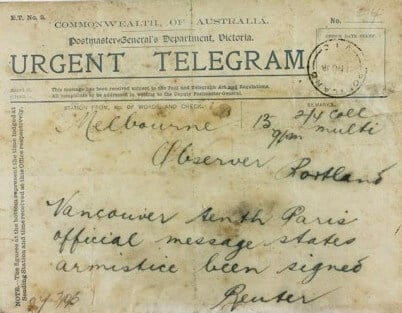 E.T. No. 2.
COMMONWEALTH OF AUSTRALIA.
No.
Postmaster-General's Department, Victoria.
OFFICE DATE STAMP.
URGENT TELEGRAM
This message has been received subject to the Post and Telegraph Act and Regulations.
All complaints to be addressed in writing to the Deputy Postmaster-General.
STATION FROM, No. OF WORDS AND CHECK.
REMARKS.
Melbourne 15 2/4 Coll
9pm multi
Observer
Portland
Vancouver tenth Paris
official message states
armistice been signed
Reuter
NOTE.—The figures at the bottom represent the time lodged at
Sending Station and time received at this Office respectively.